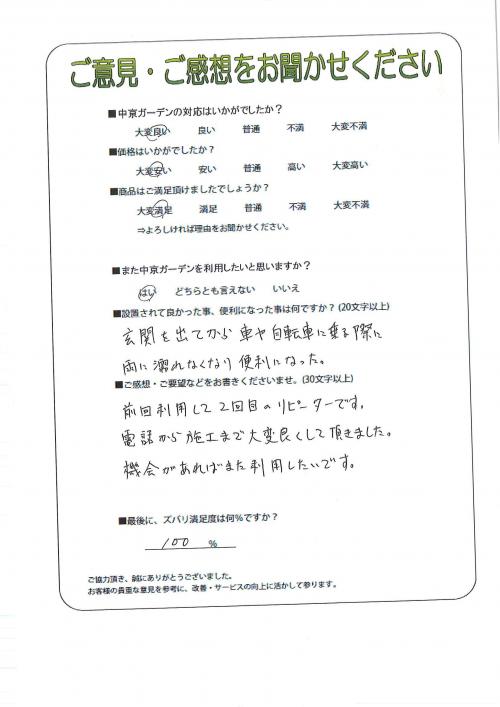 ご意見・ご感想をお聞かせください
■中京ガーデンの対応はいかがでしたか？
大変良い 良い 普通 不満 大変不満
■価格はいかがでしたか？
大変安い 安い 普通 高い 大変高い
■商品はご満足頂けましたでしょうか？
大変満足 満足 普通 不満 大変不満
⇒よろしければ理由をお聞かせください。
■また中京ガーデンを利用したいと思いますか？
はい どちらとも言えない いいえ
■設置されて良かった事、便利になった事は何ですか？(20文字以上)
玄関を出てから車や自転車に乗る際に
雨に濡れなくなり便利になった。
■ご感想・ご要望などをお書きくださいませ。(30文字以上)
前回利用して2回目のリピーターです。
電話から施工まで大変良くして頂きました。
機会があればまた利用したいです。
■最後に、ズバリ満足度は何%ですか？
100 %
ご協力頂き、誠にありがとうございました。
お客様の貴重な意見を参考に、改善・サービスの向上に活かして参ります。